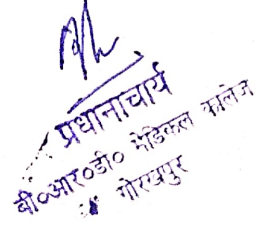 प्रधानाचार्य
बी०आर०डी० मेडिकल कालेज
गोरखपुर